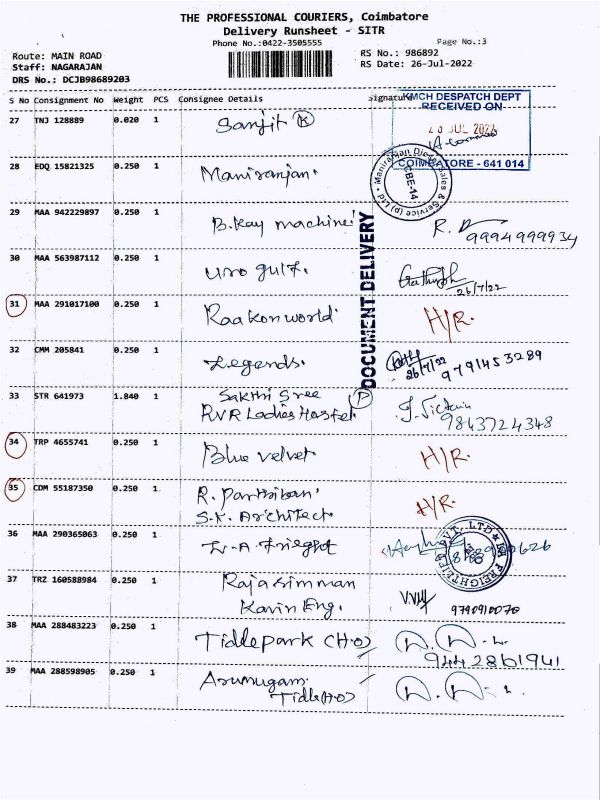 THE PROFESSIONAL COURIERS, Coimbatore
Delivery Runsheet - SITR
Phone No.:0422-3505555
Page No.:3
Route: MAIN ROAD
RS No.: 986892
Staff: NAGARAJAN
RS Date: 26-Jul-2022
DRS No.: DCJB98689203
S No Consignment No Weight PCS Consignee Details Signature
KMCH DESPATCH DEPT
RECEIVED ON
JUL 2022
COIMBATORE - 641 014
27 TNJ 128889 0.020 1 Sanjit K
28 EDQ 15821325 0.250 1 Maniranjan.
Manirajan Diesel Sales & Service (p) Ltd
CBE-14
DOCUMENT DELIVERY
29 MAA 942229897 0.250 1 B.Kay machine R.
9994999934
30 MAA 563987112 0.250 1 Uro gulf.
26/7/22
31 MAA 291017100 0.250 1 Raakonworld H/R.
32 CMM 205841 0.250 1 Legends.
26/7/22 9791453289
33 STR 641973 1.840 1 Sakthi Sree P
RVR Ladies Hostel J. Victoria
9843724348
34 TRP 4655741 0.250 1 Blue velvet H/R.
35 CDM 55187350 0.250 1 R. Parthiban H/R.
S.K. Architect.
36 MAA 290365063 0.250 1
PVT. LTD
37 TRZ 160588984 0.250 1 Rajasimman
Kavin Eng. 9790910070
38 MAA 288483223 0.250 1 Tidlepark (H.O)
9442861941
39 MAA 288598905 0.250 1 Arumugam
Tidle(H.O)